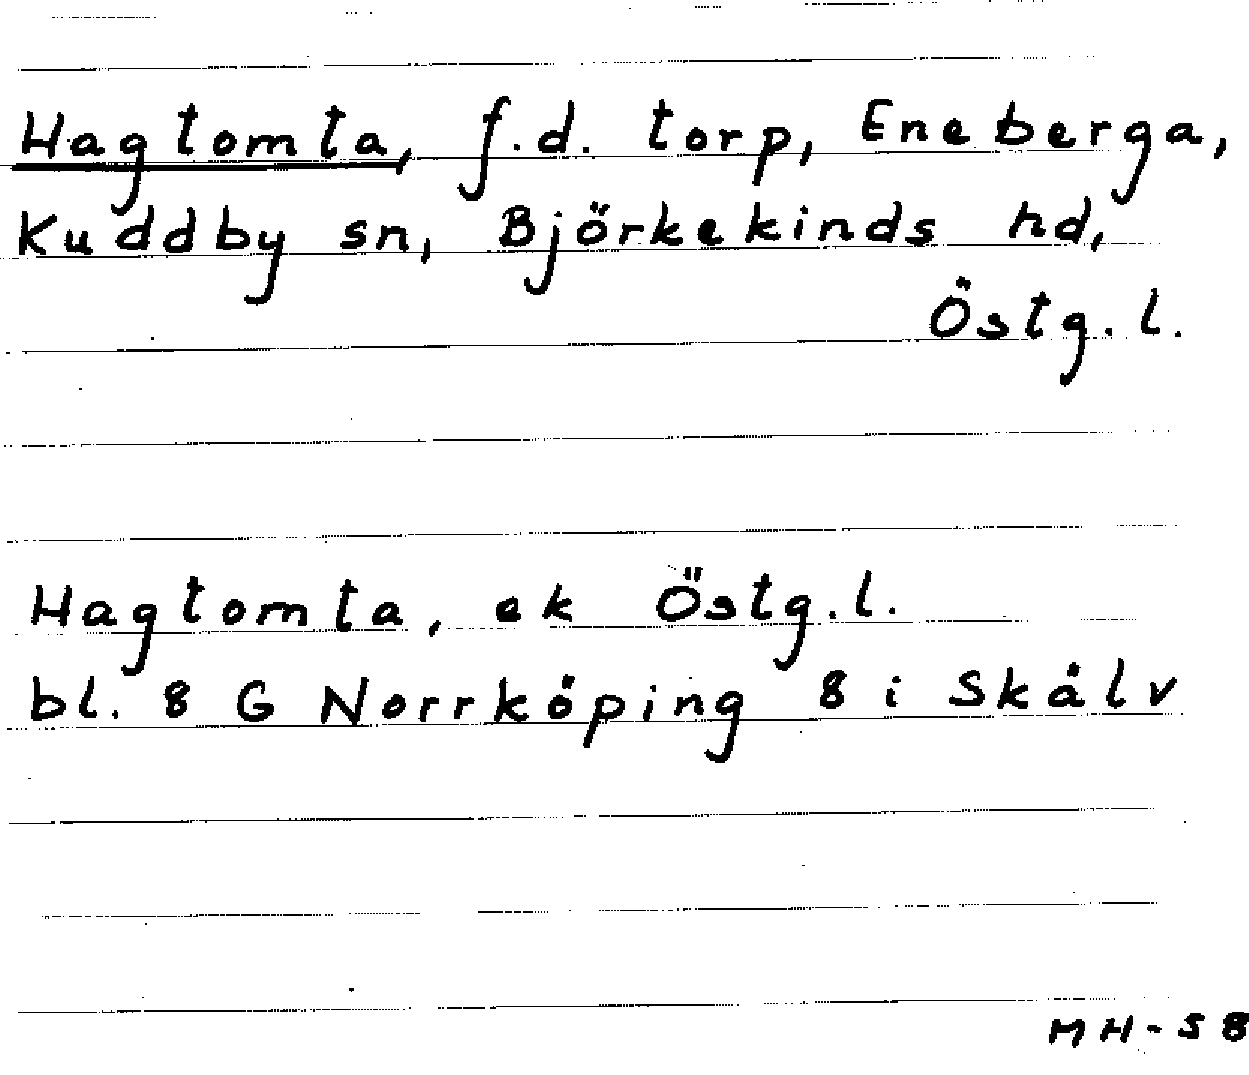 Hagtomta, f.d. torp, Eneberga,
Kuddby sn, Björkekinds hd,
Östg.l.
Hagtomta, ek Östg.l.
bl. 8 G Norrköping 8 i Skälv
MH-58